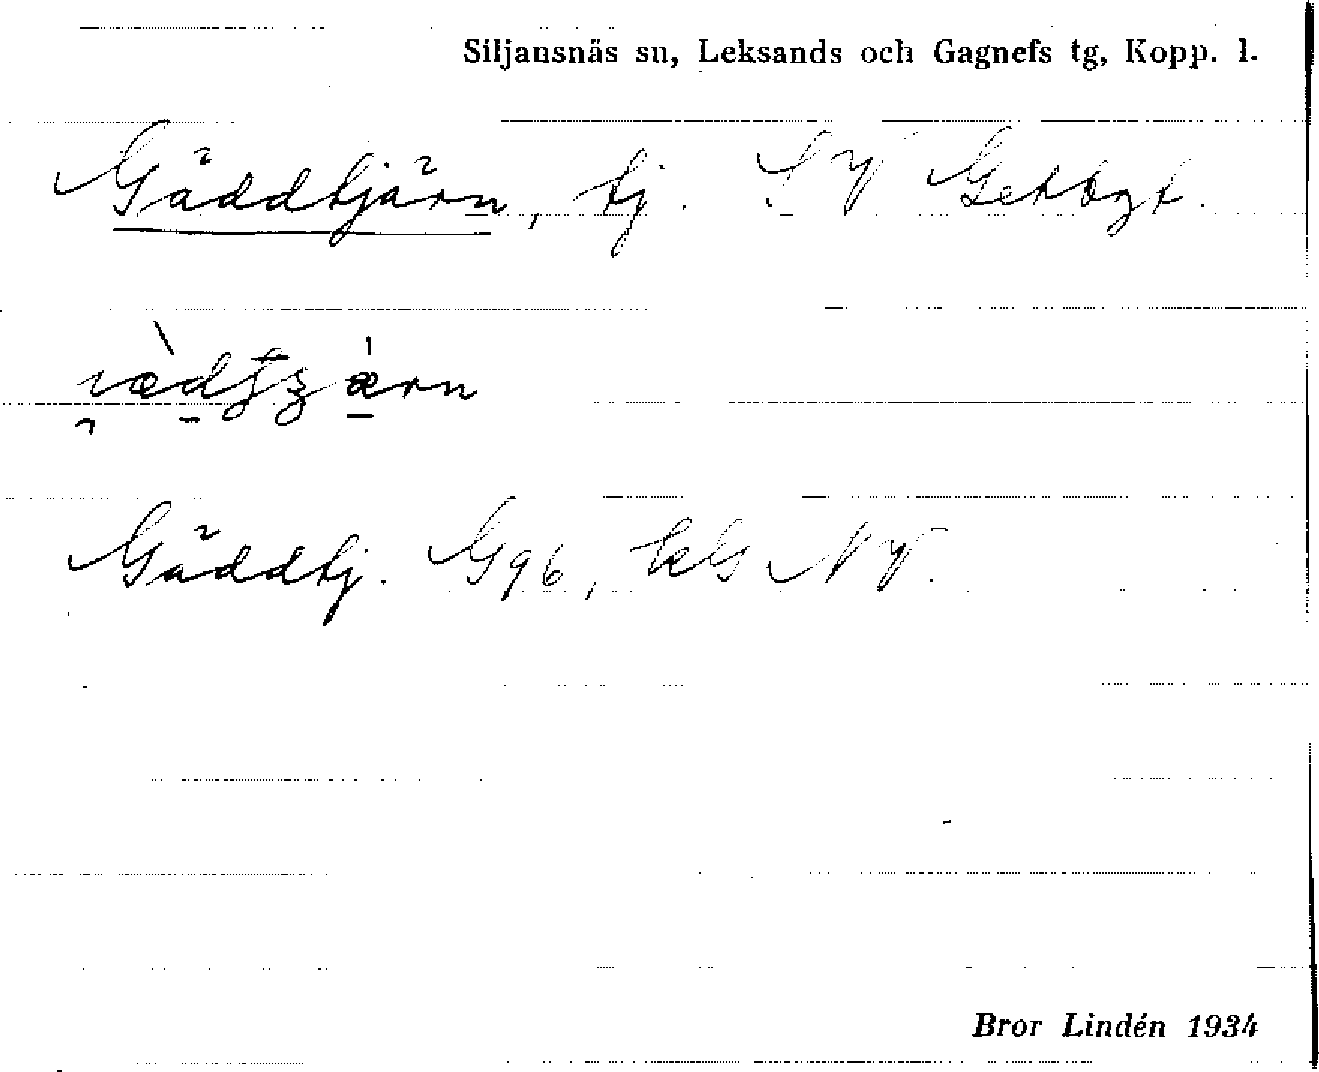 Siljansnäs sn, Leksands och Gagnefs tg, Kopp. l.
Gäddtjärn, tj. SV Getbgt.
Gäddtj. G96, kG NV.
Bror Lindén 1934